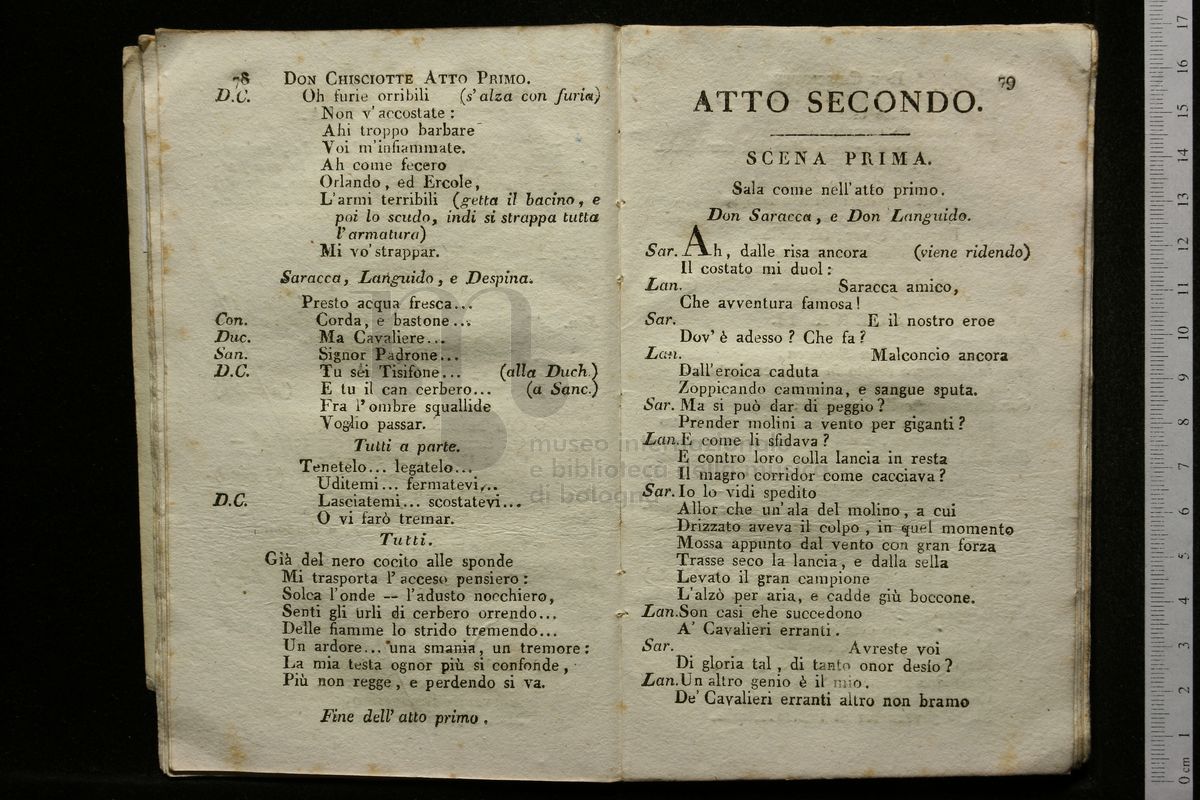 78 DON CHISCIOTTE ATTO PRIMO.
D.C. Oh furie orribili (s'alza con furia)
Non v'accostate:
Ahi troppo barbare
Voi m'infiammate.
Ah come fecero
Orlando, ed Ercole,
L'armi terribili (getta il bacino, e
poi lo scudo, indi si strappa tutta
l'armatura)
Mi vo' strappar.
Saracca, Languido, e Despina.
Presto acqua fresca...
Con. Corda, e bastone...
Duc. Ma Cavaliere...
San. Signor Padrone...
D.C. Tu sei Tisifone... (alla Duch.)
E tu il can cerbero... (a Sanc.)
Fra l'ombre squallide
Voglio passar.
Tutti a parte.
Tenetelo... legatelo...
Uditemi... fermatevi...
D.C. Lasciatemi... scostatevi...
O vi farò tremar.
Tutti.
Già del nero cocito alle sponde
Mi trasporta l'acceso pensiero:
Solca l'onde -- l'adusto nocchiero,
Senti gli urli di cerbero orrendo...
Delle fiamme lo strido tremendo...
Un ardore... una smania, un tremore:
La mia testa ognor più si confonde,
Più non regge, e perdendo si va.
Fine dell'atto primo.
79
ATTO SECONDO.
SCENA PRIMA.
Sala come nell'atto primo.
Don Saracca, e Don Languido.
Sar. Ah, dalle risa ancora (viene ridendo)
Il costato mi duol:
Lan. Saracca amico,
Che avventura famosa!
Sar. E il nostro eroe
Dov'è adesso? Che fa?
Lan. Malconcio ancora
Dall'eroica caduta
Zoppicando cammina, e sangue sputa.
Sar. Ma si può dar di peggio?
Prender molini a vento per giganti?
Lan. E come li sfidava?
E contro loro colla lancia in resta
Il magro corridor come cacciava?
Sar. Io lo vidi spedito
Allor che un'ala del molino, a cui
Drizzato aveva il colpo, in quel momento
Mossa appunto dal vento con gran forza
Trasse seco la lancia, e dalla sella
Levato il gran campione
L'alzò per aria, e cadde giù boccone.
Lan. Son casi che succedono
A' Cavalieri erranti.
Sar. Avreste voi
Di gloria tal, di tanto onor desio?
Lan. Un altro genio è il mio.
De' Cavalieri erranti altro non bramo
museo internazionale
e biblioteca della musica
di bologna
0 cm 1 2 3 4 5 6 7 8 9 10 11 12 13 14 15 16 17